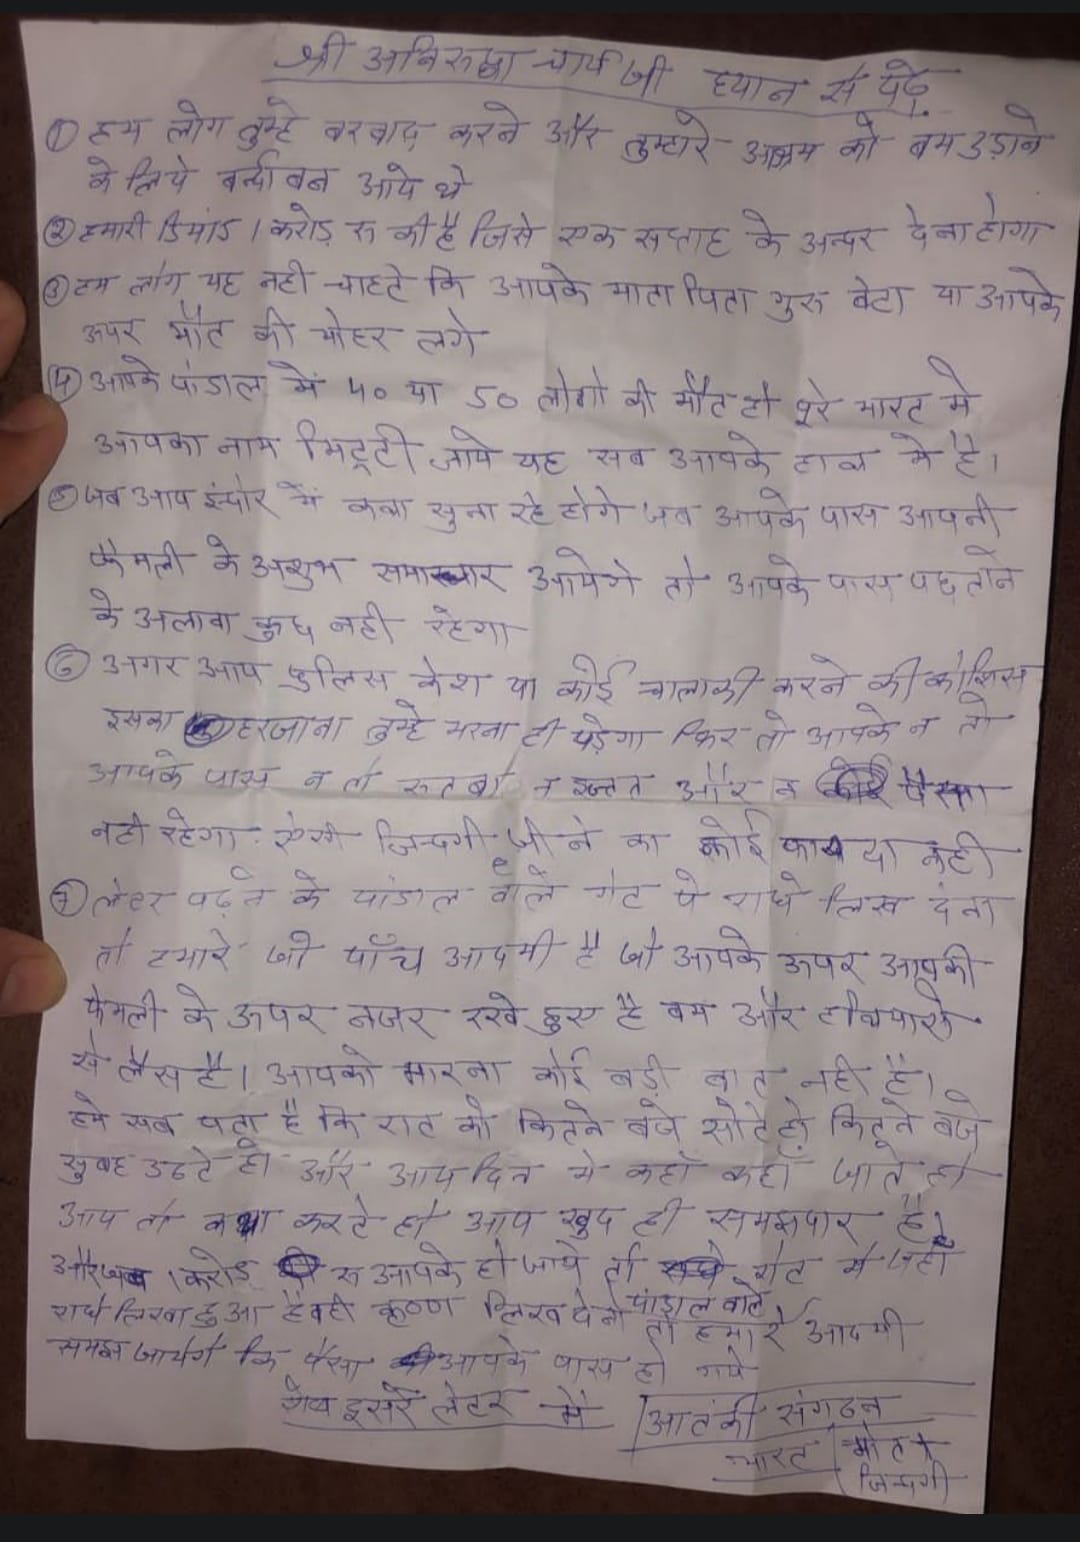 श्री अनिरुद्धा चार्य जी ध्यान से पढ़े
① हम लोग तुम्हे बरबाद करने और तुम्हारे आश्रम को बम उड़ाने
के लिये बर्न्दाबन आये थे
② हमारी डिमांड 1 करोड़ रू की है जिसे एक सप्ताह के अन्दर देना होगा
③ हम लोग यह नही चाहते कि आपके माता पिता गुरु बेटा या आपके
ऊपर मौत की मोहर लगे
④ आपके पांडाल में 40 या 50 लोगो की मौत हो पूरे भारत मे
आपका नाम मिट्टी जाये यह सब आपके हाथ मे है।
⑤ जब आप इंदोर में कथा सुना रहे होगे जब आपके पास आपनी
फैमली के अशुभ समाचार आयेगे तो आपके पास पछताने
के अलावा कुछ नही रहेगा
⑥ अगर आप पुलिस केश या कोई चालाकी करने की कोशिस
इसका हरजाना तुम्हे भरना ही पड़ेगा फिर तो आपके न तो
आपके पास न तो रूतबा न इज्जत और न पैसा
नही रहेगा ऐसी जिन्दगी जीने का कोई फायदा नही
⑦ लेटर पढ़ने के पांडाल वाले गेट पे राधे लिख देना
तो हमारे जो पाँच आदमी है जो आपके ऊपर आपकी
फेमली के ऊपर नजर रखे हुए है बम और हथियारो
से लैस है। आपको मारना कोई बड़ी बात नही है।
हमे सब पता है कि रात को कितने बजे सोते हो कितने बजे
सुबह उठते हो और आप दिन मे कहाँ कहाँ जाते हो
आप तो कथा करते हो आप खुद ही समझदार है।
और जब 1 करोड़ रू आपके हो जाये तो गेट मे जहाँ
राधे लिखा हुआ है वही कृष्ण लिख देना पांडाल वाले तो हमारे आदमी
समझ जायेगे कि पैसा आपके पास हो गये
शेष दूसरे लेटर में
आतंकी संगठन
भारत
मौत
जिन्दगी